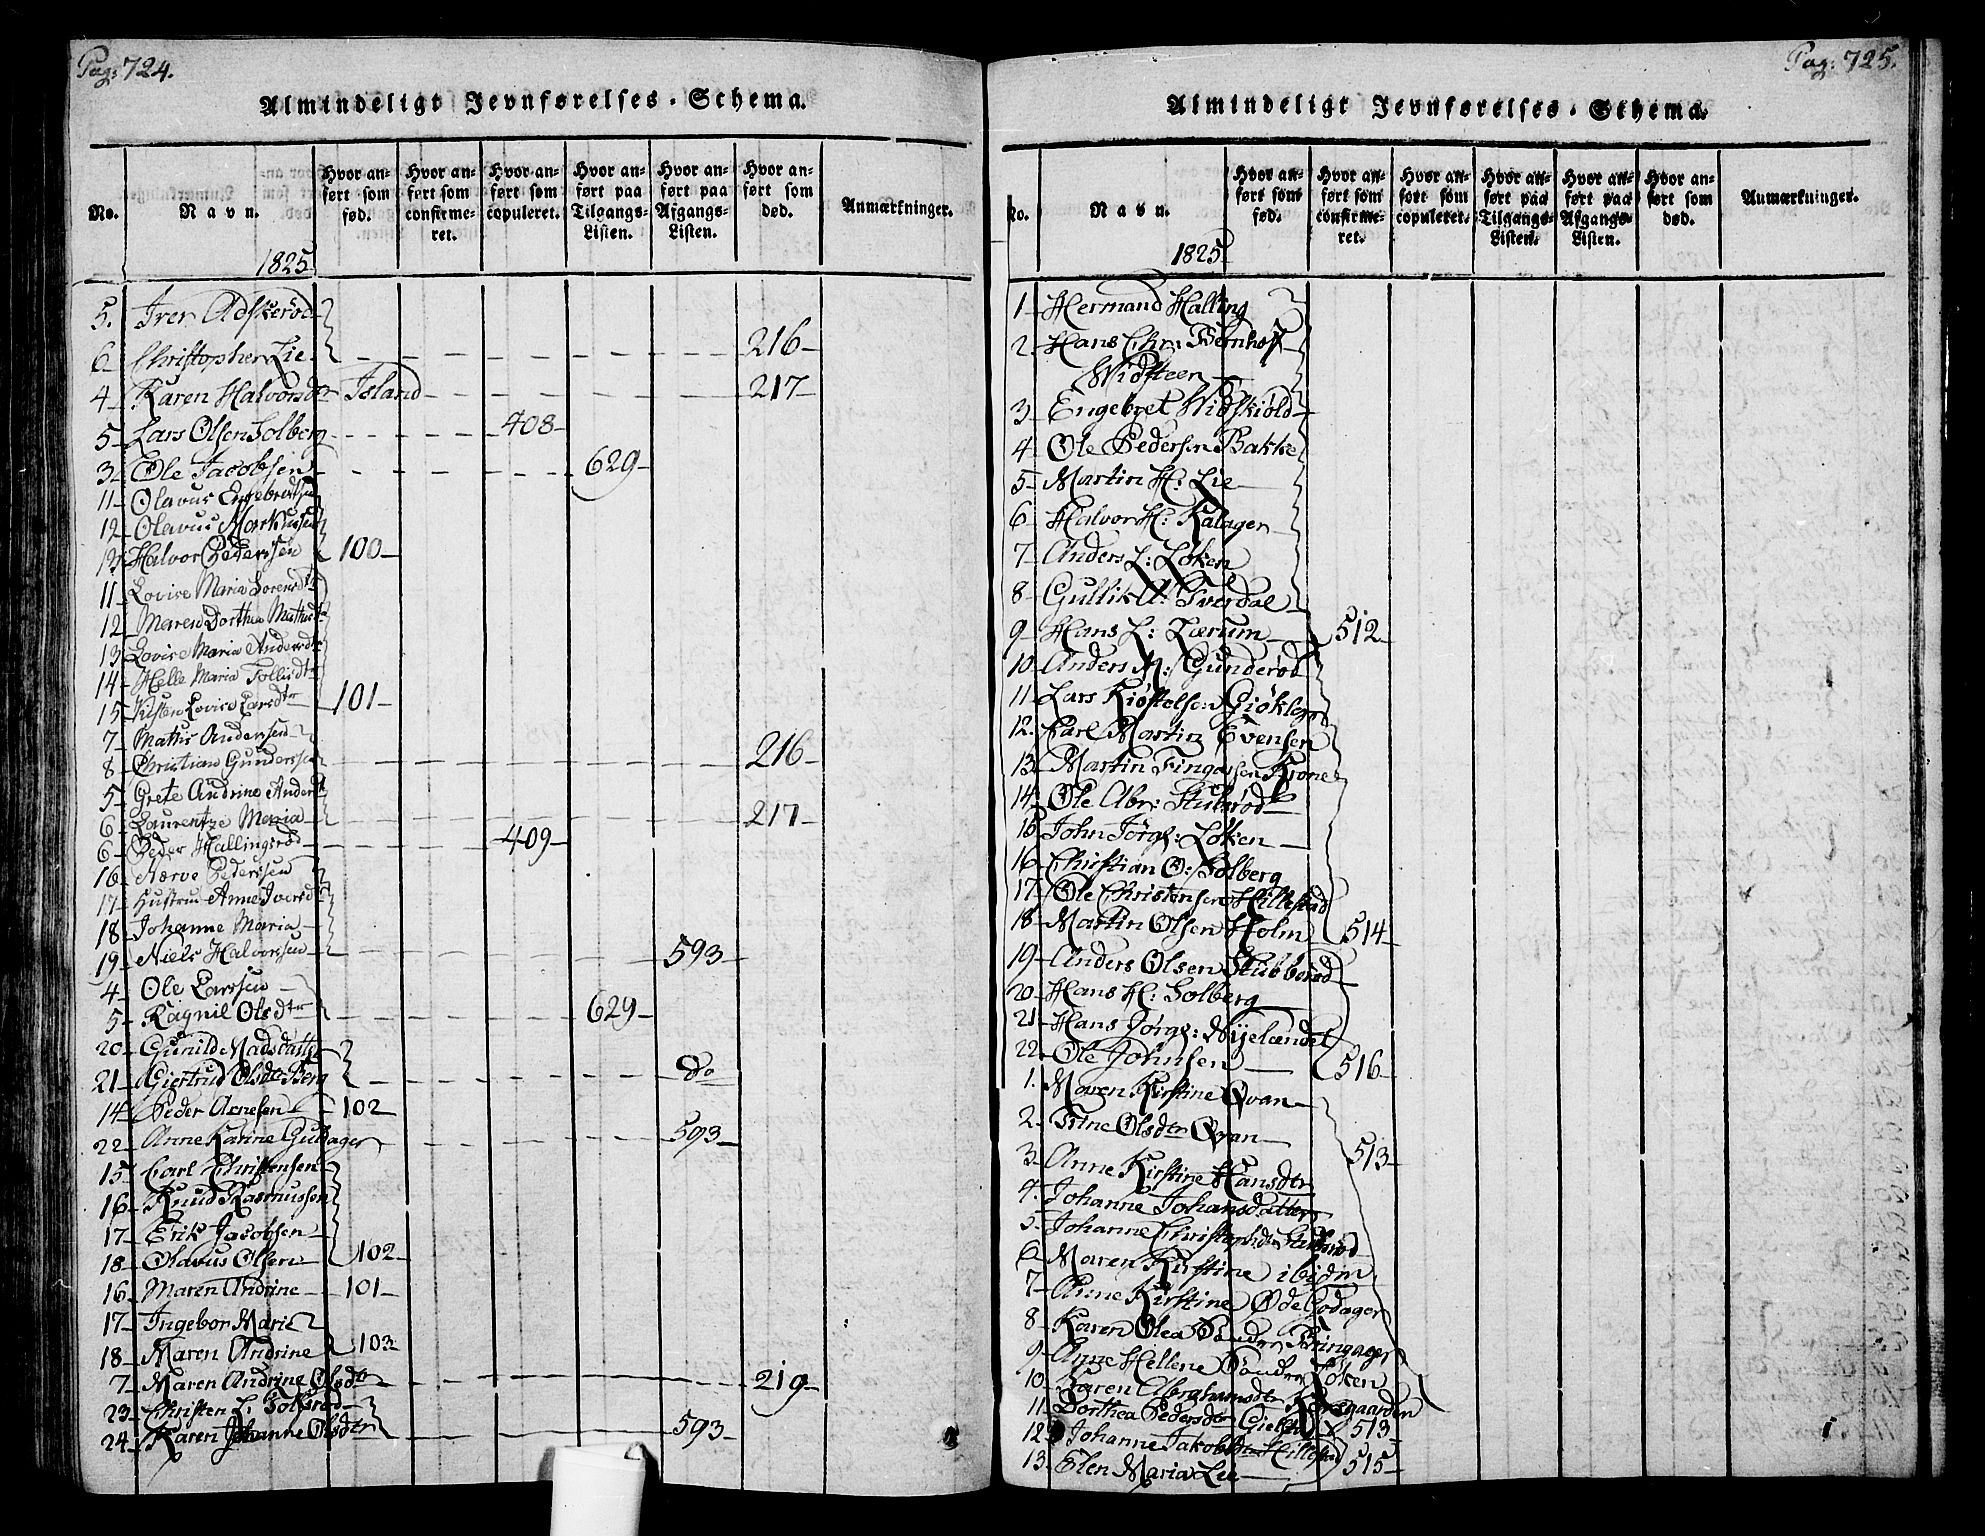 Pag: 724.
Almindeligt Jevnførelses-Schema.
No. Navn. Hvor anført som fød. Hvor anført som confirmeret. Hvor anført som copuleret. Hvor anført paa Tilgangs-Listen. Hvor anført paa Afgangs-Listen. Hvor anført som død. Anmærkninger.
1825
5. Iver Adskerød
6 Christopher Lie 216
4 Karen Halvorsdtr Island 217
5 Lars Olsen Solberg 408
3 Ole Jacobsen 629
11 Olavus Engebretsen
12 Olavus Markussen
13 Halvor Pederssen 100
11 Lovise Maria Lorensdtr
12 Maren Dorthea
13 Lovise Maria Andersdtr
14 Helle Maria
15 Kisten Lovise Larsdtr 101
7 Mathis Anderssen
8 Christian Gunderssen 216
5 Grete Andrine Andersd
6 Laurentze Maria 217
6 Peder Hallingsrød 409
16 Nerve Pederssen
17 Hustru Anne Iversd
18 Johanne Maria
19 Niels Halvorssen 593
4 Ole Larssen
5 Ragnil Olsdtr 629
20 Gunild Madsdatter
21 Giertrud Olsdtr Berg do
14 Peder Arnesen 102
22 Anne Karine 593
15 Carl Christensen
16 Knud Rasmussen
17 Erik Jacobsen
18 Olavus Olsen 102
16 Maren Andrine 101
17 Ingebor Marie
18 Maren Andrine 103
7 Maren Andrine Olsdtr 219
23 Christen L:
24 Karen Johanne Olsdtr 593
Pag: 725.
Almindeligt Jevnførelses-Schema.
No. Navn. Hvor anført som fød. Hvor anført som confirmeret. Hvor anført som copuleret. Hvor anført paa Tilgangs-Listen. Hvor anført paa Afgangs-Listen. Hvor anført som død. Anmærkninger.
1825
1 Hermand Halling
2 Hans Chr: Bernhof
Widsteen
3 Engebret Widskiold
4 Ole Pedersen Bakke
5 Martin H: Lie
6 Halvor H: Kalager
7 Anders L: Løken
8 Gullik A: Sverdal
9 Hans L: Lærum 512
10 Anders M: Gunderød
11 Lars Kiøstelsen Giøklep
12. Carl Martin Evensen
13 Martin Fingarssen Krone
14 Ole Abr: Stubsrød
15 John Jørgs: Løken
16 Christian O: Solberg
17 Ole Christensen Hillestad
18 Martin Olsen Holm 514
19 Anders Olsen Stubberød
20 Hans H: Solberg
21 Hans Jørgs: Nyelændet
22 Ole Johnsen 516
1. Maren Kirstine Qvan
2. Trine Olsdtr Qvan
3. Anne Kirstine Hansdtr 513
4. Johanne Johansdatter
5. Johanne Christophdtr Stubsrød
6 Maren Kirstine ibidm
7 Anne Kirstine Øde
8 Karen Olea Bringager
9 Anne Hellene Løken
10 Karen Abrahamsdtr
11 Dorthea Pedersdtr 513
12 Johanne Jakobsdtr Hillestad
13 Elen Maria Lee 515